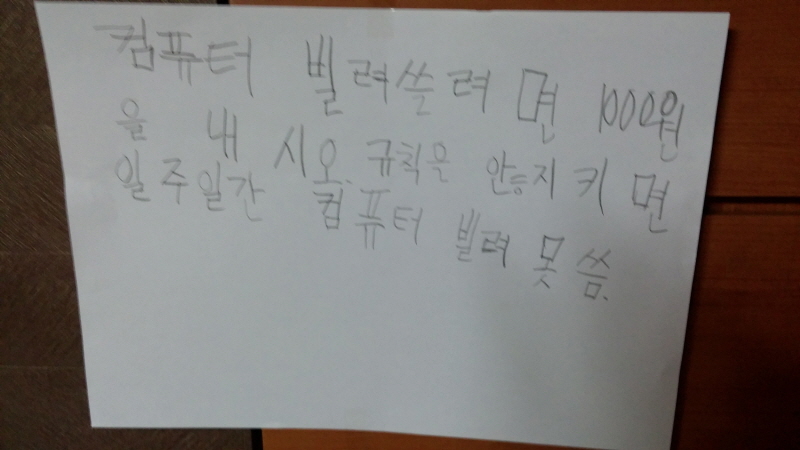 컴퓨터 빌려쓸려면 1000원
을 내시오. 규칙을 안지키면
일주일간 컴퓨터 빌려 못씀.